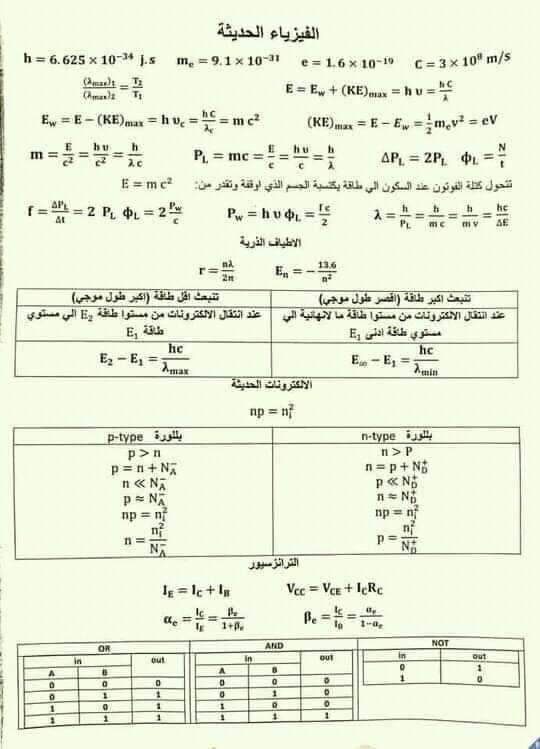 الفيزياء الحديثة
h = 6.625 × 10⁻³⁴ j.s mₑ = 9.1 × 10⁻³¹ e = 1.6 × 10⁻¹⁹ C = 3 × 10⁸ m/s
(λmax)₁/(λmax)₂ = T₂/T₁ E = E_w + (KE)max = h υ = h C/λ
E_w = E − (KE)max = h υ_c = h C/λ_c = m c² (KE)max = E − E_w = 1/2 mₑv² = eV
m = E/c² = h υ/c² = h/λ c P_L = mc = E/c = h υ/c = h/λ ΔP_L = 2P_L ϕ_L = N/t
تتحول كتلة الفوتون عند السكون الي طاقة يكتسبة الجسم الذي اوقفة وتقدر من: E = m c²
f = ΔP_L/Δt = 2 P_L ϕ_L = 2 P_w/c P_w = h υ ϕ_L = f c/2 λ = h/P_L = h/m c = h/m v = hc/ΔE
الاطياف الذرية
r = nλ/2π Eₙ = − 13.6/n²
تنبعث اقل طاقة (اكبر طول موجي) تنبعث اكبر طاقة (اقصر طول موجي)
عند انتقال الالكترونات من مستوا طاقة E₂ الي مستوي طاقة E₁ عند انتقال الالكترونات من مستوا طاقة ما لانهائية الي مستوي طاقة ادنى E₁
E₂ − E₁ = hc/λmax E∞ − E₁ = hc/λmin
الالكترونات الحديثة
np = nᵢ²
بللورة p-type بللورة n-type
p > n n > P
p = n + N_A⁻ n = p + N_D⁺
n ≪ N_A⁻ p ≪ N_D⁺
p ≈ N_A⁻ n ≈ N_D⁺
np = nᵢ² np = nᵢ²
n = nᵢ²/N_A⁻ p = nᵢ²/N_D⁺
الترانزسيور
I_E = I_C + I_B V_CC = V_CE + I_C R_C
αₑ = I_C/I_E = βₑ/1+βₑ βₑ = I_C/I_B = αₑ/1−αₑ
OR AND NOT
in out in out in out
A B A B 0 1
0 0 0 0 0 0 1 0
0 1 1 0 1 0
1 0 1 1 0 0
1 1 1 1 1 1